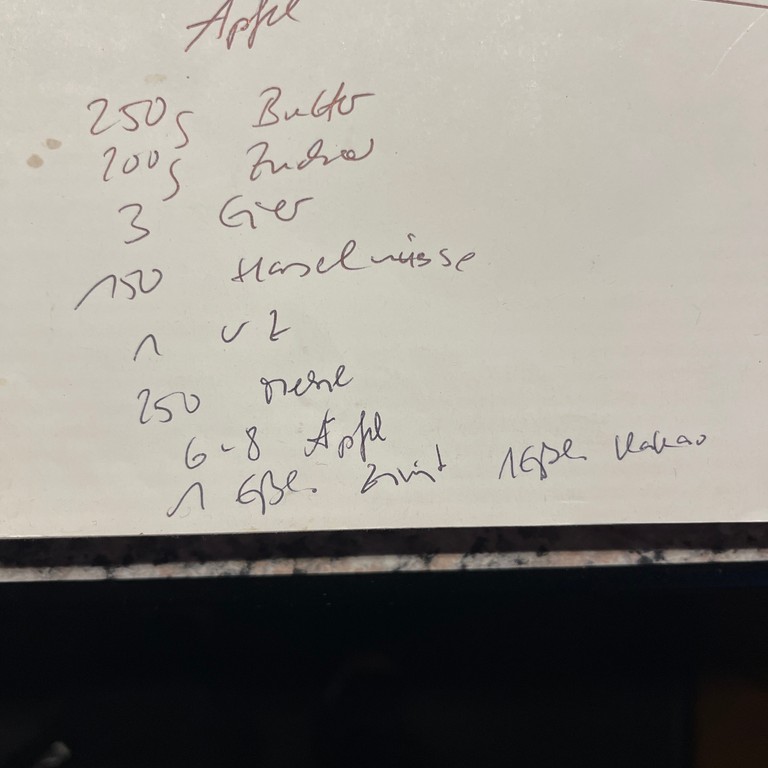 Äpfel
250g Butter
200g Zucker
3 Eier
150 Haselnüsse
1 VZ
250 Mehl
6-8 Äpfel
1 Eßl. Zimt 1 Eßl. Kakao